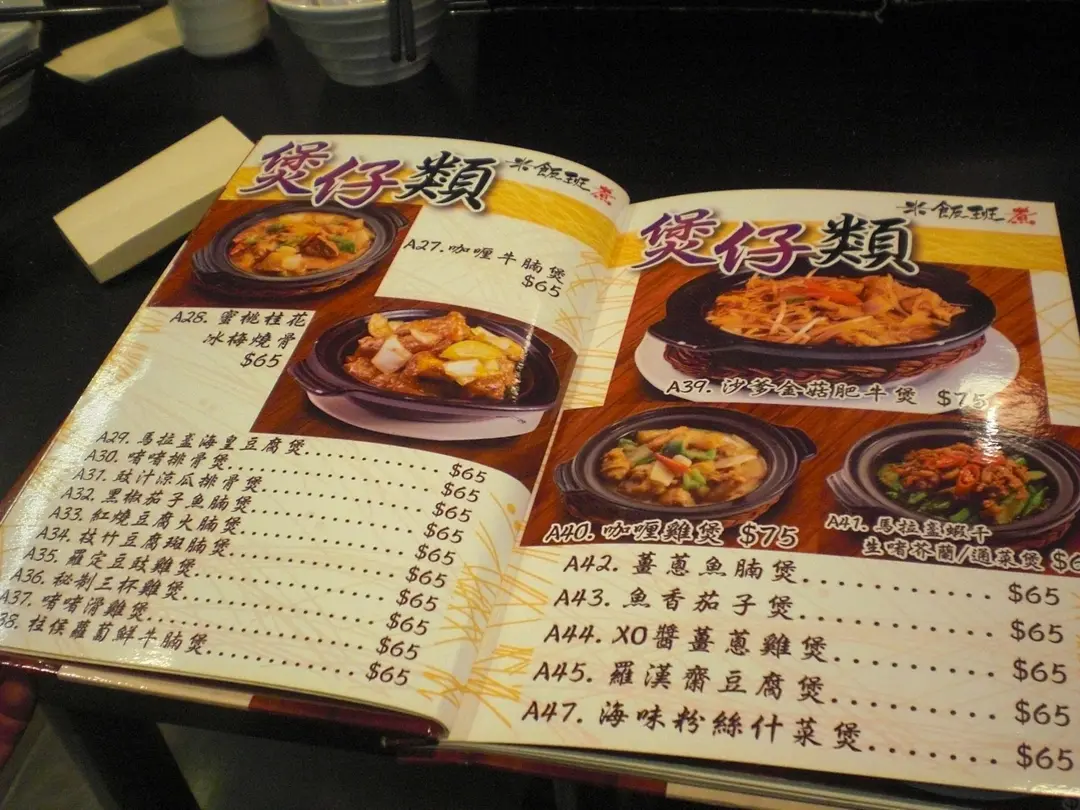 煲仔類 米飯班煮
A27. 咖喱牛腩煲
$65
A28. 蜜桃桂花
冰梅燒骨
$65
A29. 馬拉盞海皇豆腐煲 $65
A30. 啫啫排骨煲 $65
A31. 豉汁涼瓜排骨煲 $65
A32. 黑椒茄子魚腩煲 $65
A33. 紅燒豆腐火腩煲 $65
A34. 枝竹豆腐斑腩煲 $65
A35. 羅定豆豉雞煲 $65
A36. 秘制三杯雞煲 $65
A37. 啫啫滑雞煲 $65
38. 柱侯蘿蔔鮮牛腩煲 $65
煲仔類 米飯班煮
A39. 沙爹金菇肥牛煲 $75
A40. 咖喱雞煲 $75
A41. 馬拉盞蝦干
生啫芥蘭/通菜煲 $6
A42. 薑蔥魚腩煲 $65
A43. 魚香茄子煲 $65
A44. XO醬薑蔥雞煲 $65
A45. 羅漢齋豆腐煲 $65
A47. 海味粉絲什菜煲 $65